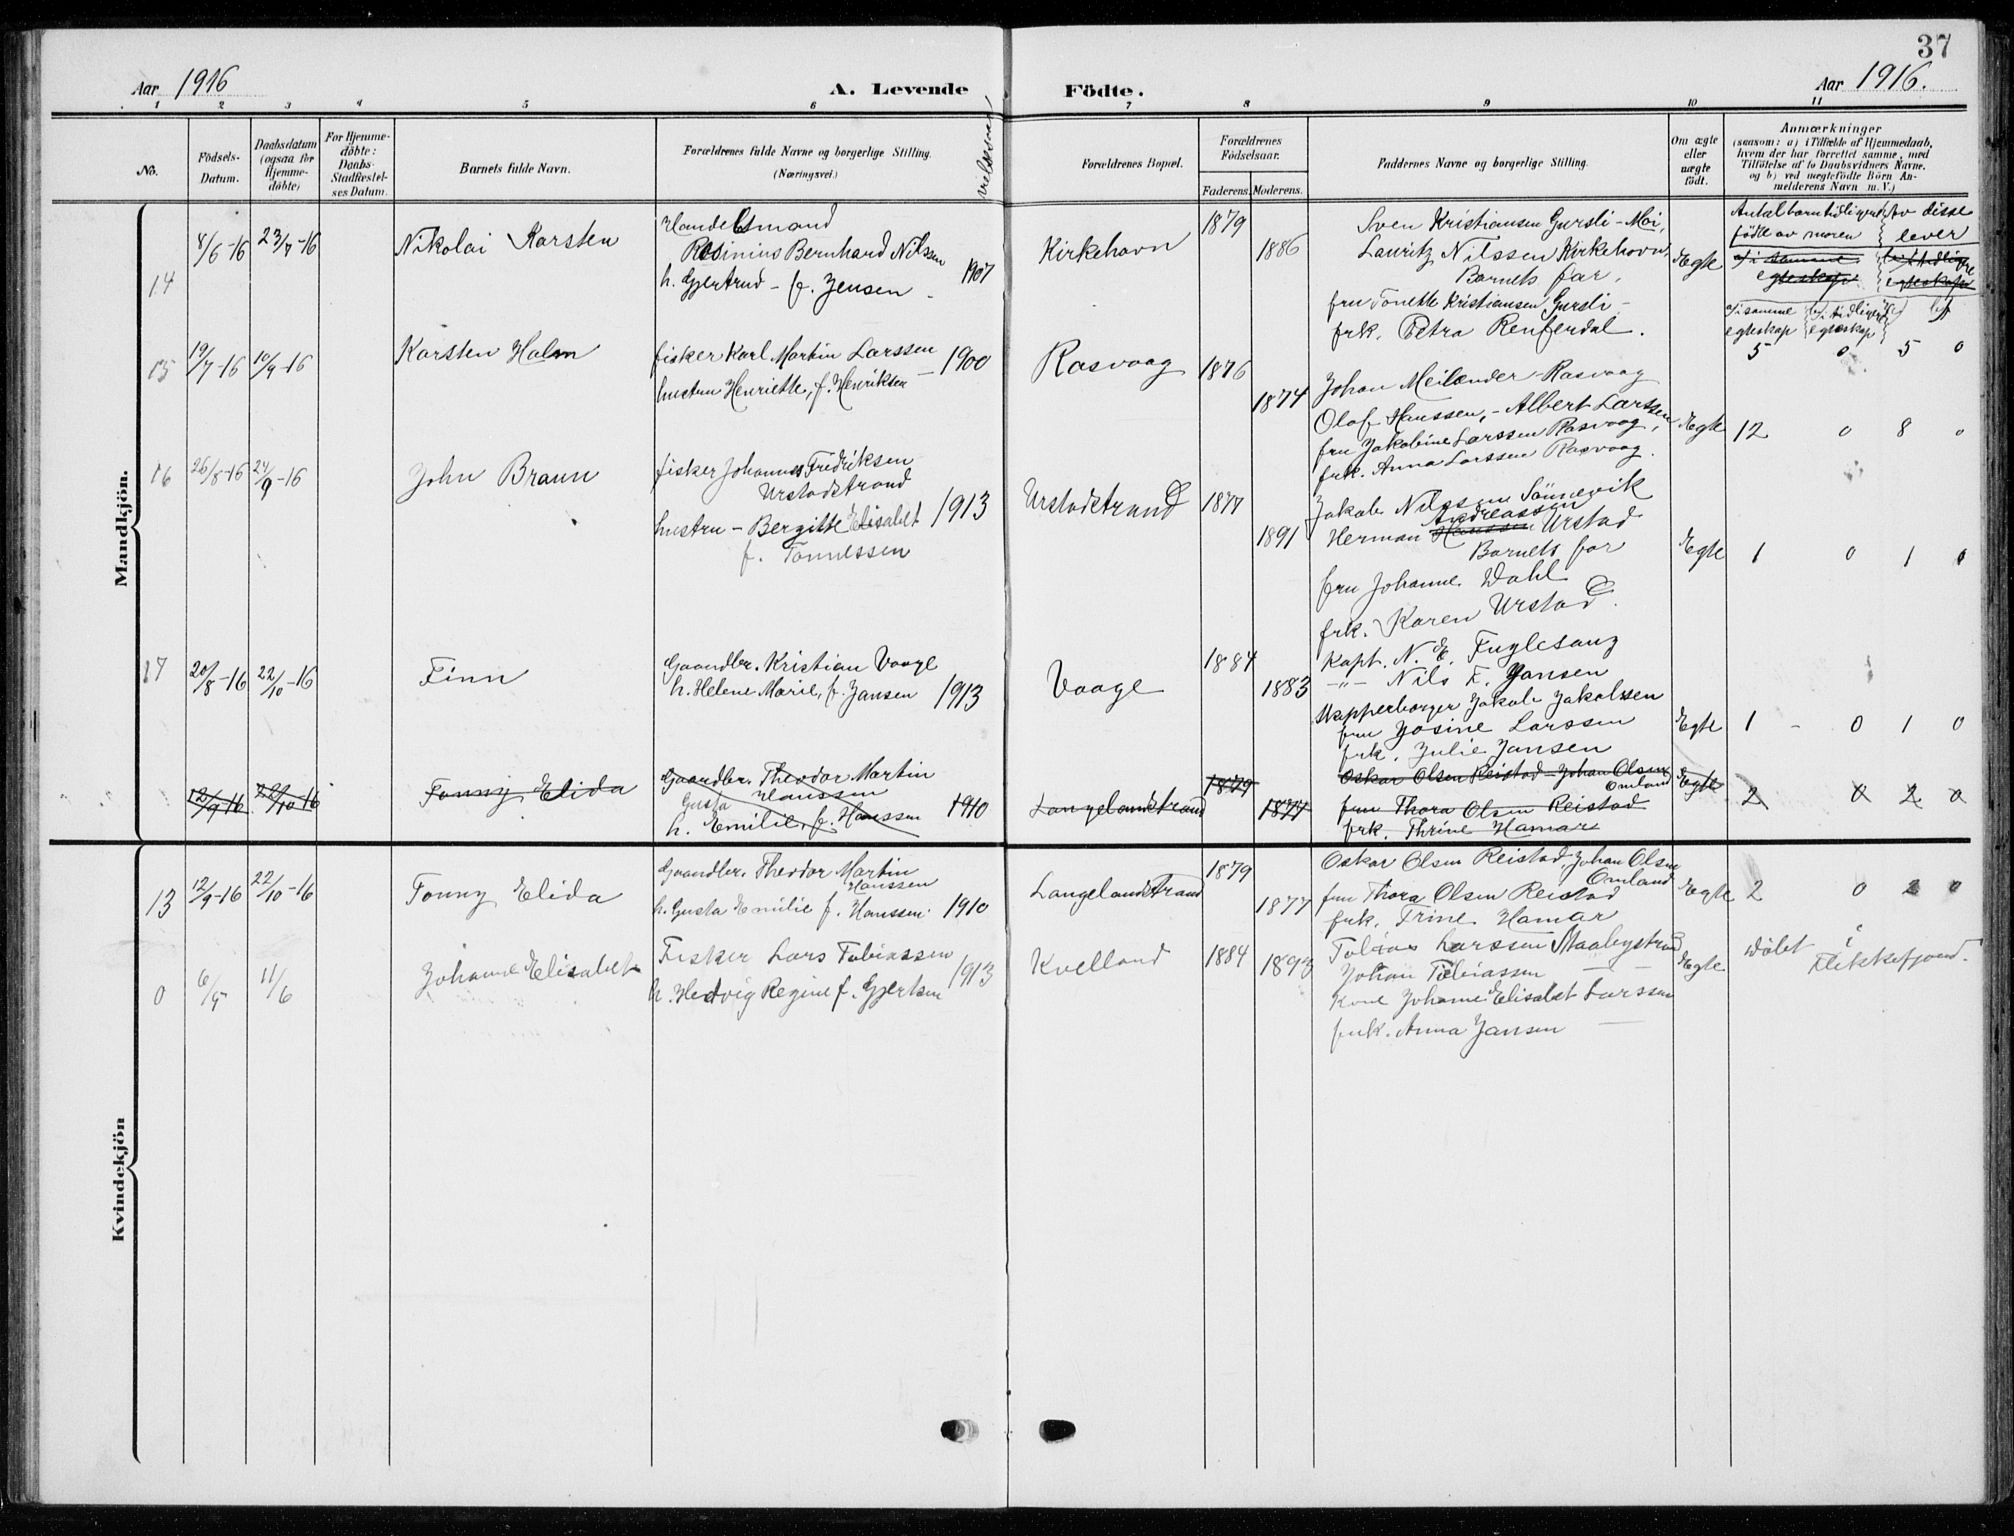 37
Aar 1916
A. Levende
Födte.
Aar 1916.
1 2 3 4 5 6 7 8 9 10 11
No.
Födsels-
Datum.
Daabsdatum
(ogsaa for
Hjemme-
döbte)
For Hjemme-
döbte:
Daabs-
Stadfæstel-
ses Datum.
Barnets fulde Navn.
Forældrenes fulde Navne og borgerlige Stilling.
(Næringsvei.)
Forældrenes Bopæl.
Forældrenes
Födselsaar.
Faderens. Moderens.
Faddernes Navne og borgerlige Stilling.
Om ægte
eller
uægte
födt.
Anmærkninger
(saasom: a) i Tilfælde af Hjemmedaab,
hvem der har forrettet samme, med
Tilföielse af to Daabsvidners Navne.
og b) ved uegtefödte Börn An-
melderens Navn m. V.)
Mandkjön.
14
8/6-16
23/7-16
Nikolai Karsten
Handelsmand
Rosinius Bernhard Nilssen
h. Gjertrud - f. Jensen
1907
Kirkehavn
1879
1886
Sven Kristiansen Gursli - Moi,
Lauritz Nilssen Kirkehovn,
Barnets far,
fru Tonette Kristiansen Gursli -
frk. Petra Renferdal.
Ægte
Antal barn tidligere
födte av moren
Av disse
lever
a/ i samme
egteskap
b/ i tidligere
egteskap
a/ i samme
egteskap
b/ i tidligere
egteskap
5 0 5 0
15
19/7-16
10/9-16
Karsten Holm
fisker Karl Martin Larssen
hustru Henriette, f. Henriksen
1900
Rasvaag
1876
1874
Johan Meilænder - Rasvaag
Olaf Hanssen, - Albert Larssen
fru Jakobine Larssen Rasvaag,
frk. Anna Larssen Rasvaag.
Ægte
12 0 8 0
16
26/8-16
24/9-16
John Braun
fisker Johannes Fredriksen
Urstadstrand
hustru - Bergitte Elisabet
f. Tönnessen
1913
Urstadstrand
1877
1891
Jakob Nilssen Sönnevik
Andreassen
Herman Hanssen Urstad
Barnets far
fru Johanne Wahl
frk. Karen Urstad.
Ægte
1 0 1 0
17
20/8-16
22/10-16
Finn
Gaardbr. Kristian Vaage
h. Helene Marie, f. Jansen
1913
Vaage
1884
1883
Kapt. N. E. Fuglesang
-"- Nils F. Jansen
Skipperborger Jakob Jakobsen
fru Josine Larssen
frk. Julie Jansen
Ægte
1 - 0 1 0
12/9-16
22/10-16
Tonny Elida
Gaardbr. Theodor Martin
Hanssen
Gusta
h. Emilie, f. Hanssen
1910
Langelandstrand
1879
1877
Oskar Olsen Reistad - Johan Olsen
Omland
fru Thora Olsen Reistad
frk. Thrine Hamar
Ægte
2 0 2 0
Kvindekjön
13
12/9-16
22/10-16
Tonny Elida
Gaardbr. Theodor Martin
Hanssen
h. Gusta Emilie f. Hanssen.
1910
Langelandstrand
1879
1877
Oskar Olsen Reistad, Johan Olsen
Omland
fru Thora Olsen Reistad
frk. Trine Hamar
Ægte
2 0 2 0
0
6/5
11/6
Johanne Elisabet
Fisker Lars Tobiassen
h. Hedvig Regine f. Gjertsen
1913
Kvelland
1884
1893
Tobias Larssen Staalystrand
Johan Tobiassen
Kone Johanne Elisabet Larssen
frk. Anna Jansen
Ægte
Döbt i
Flekkefjord.